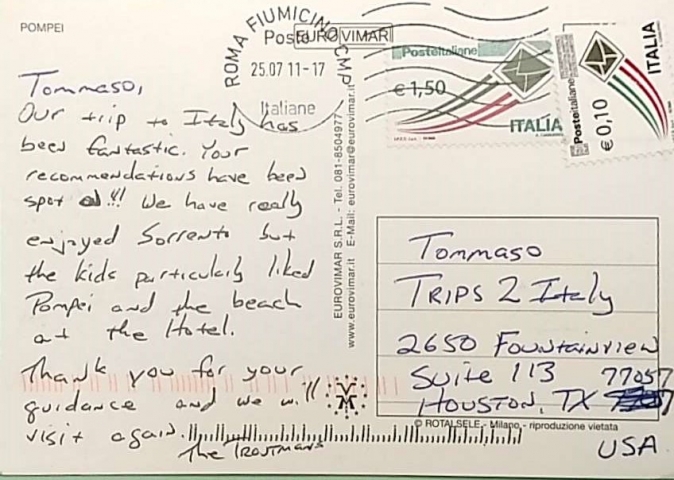 POMPEI
Tommaso,
Our trip to Italy has
been fantastic. Your
recommendations have been
spot on!!! We have really
enjoyed Sorrento but
the kids particularly liked
Pompei and the beach
at the Hotel.
Thank you for your
guidance and we will
visit again.
The Troutmans
ROMA FIUMICINO CMP
Poste
25.07 11-17
Italiane
EUROVIMAR
EUROVIMAR S.R.L. - Tel. 081-8504977
www.eurovimar.it E-Mail: eurovimar@eurovimar.it
Posteitaliane
€ 1,50
ITALIA
Posteitaliane
€ 0,10
ITALIA
Tommaso
TRIPS 2 Italy
2650 FOUNTAINVIEW
SUITE 113 77057
HOUSTON, TX
USA
© ROTALSELE - Milano - riproduzione vietata